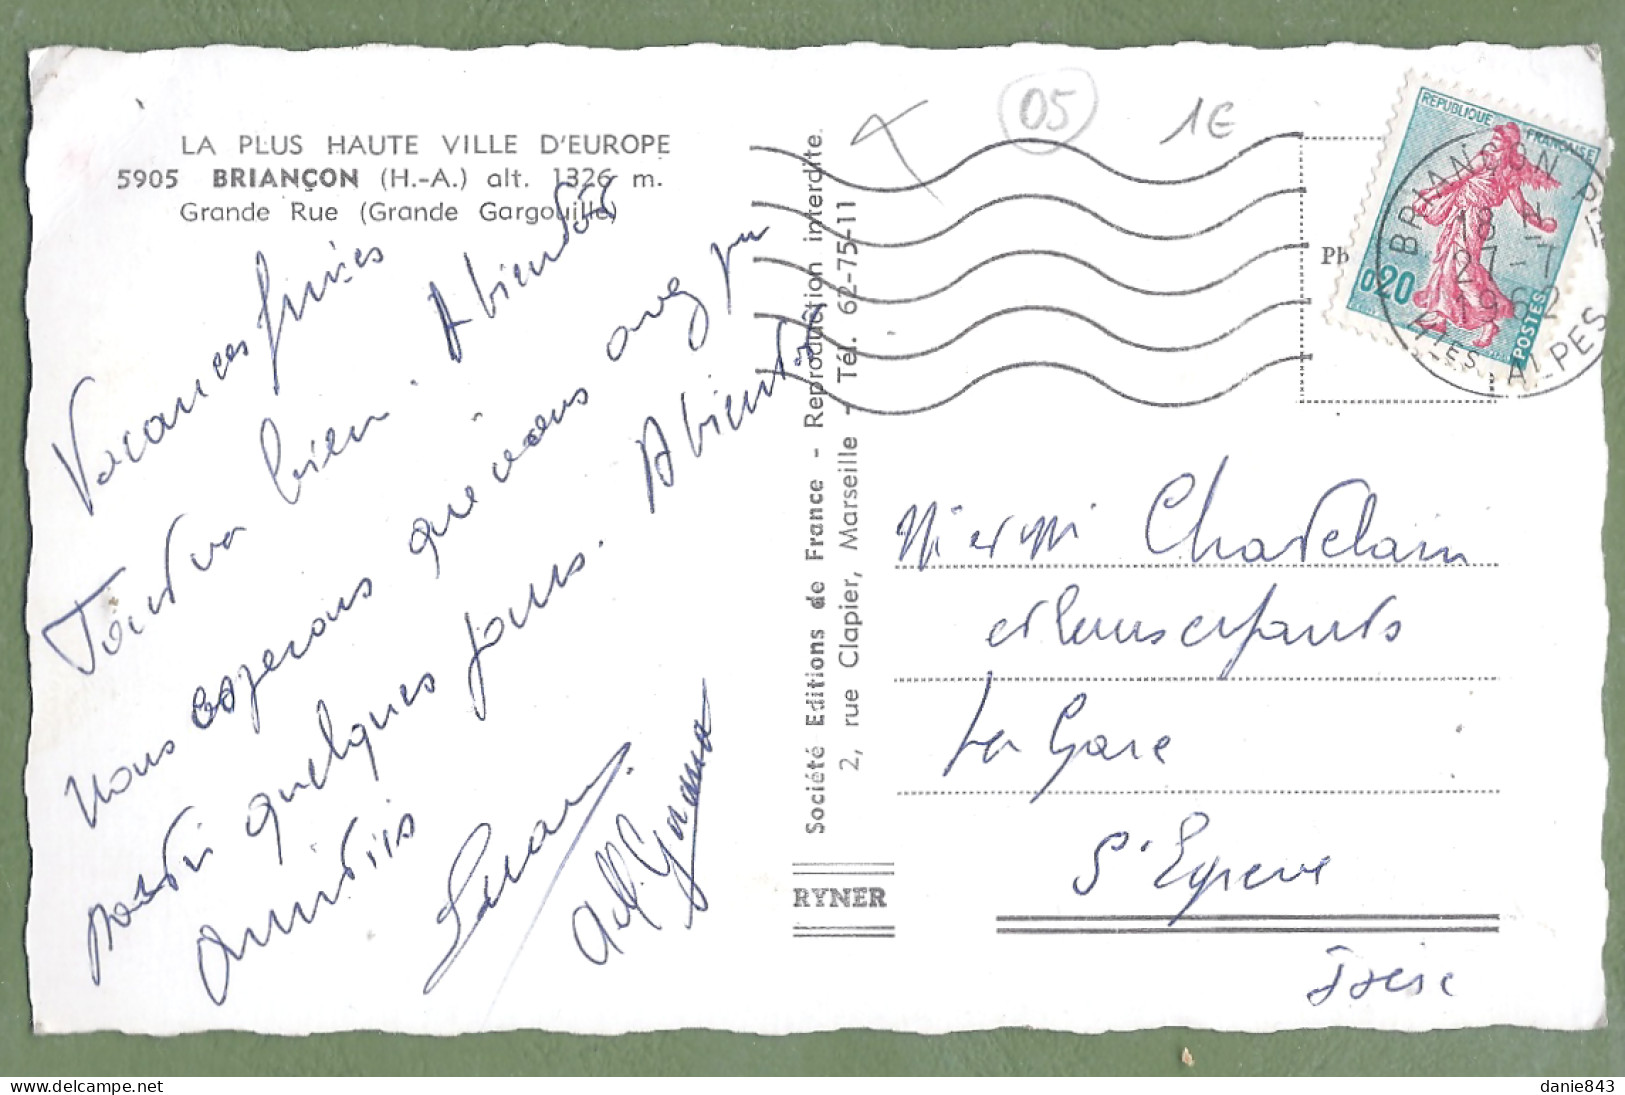 LA PLUS HAUTE VILLE D'EUROPE
5905 BRIANÇON (H.-A.) alt. 1326 m.
Grande Rue (Grande Gargouille)
Vacances finies
Tout va bien. A bientôt
nous espérons que vous avez pu
partir quelques jours. A bientôt
Amitiés
Société Editions de France - Reproduction interdite.
2, rue Clapier, Marseille - Tél. 62-75-11
RYNER
05
1€
Pb
REPUBLIQUE FRANÇAISE
0,20
POSTES
BRIANÇON
18 H
27-7
1962
HTES ALPES
Mr et Mme Chatelain
et leurs enfants
La Gare
St Egrève
Isère
danie843
delcampe.net